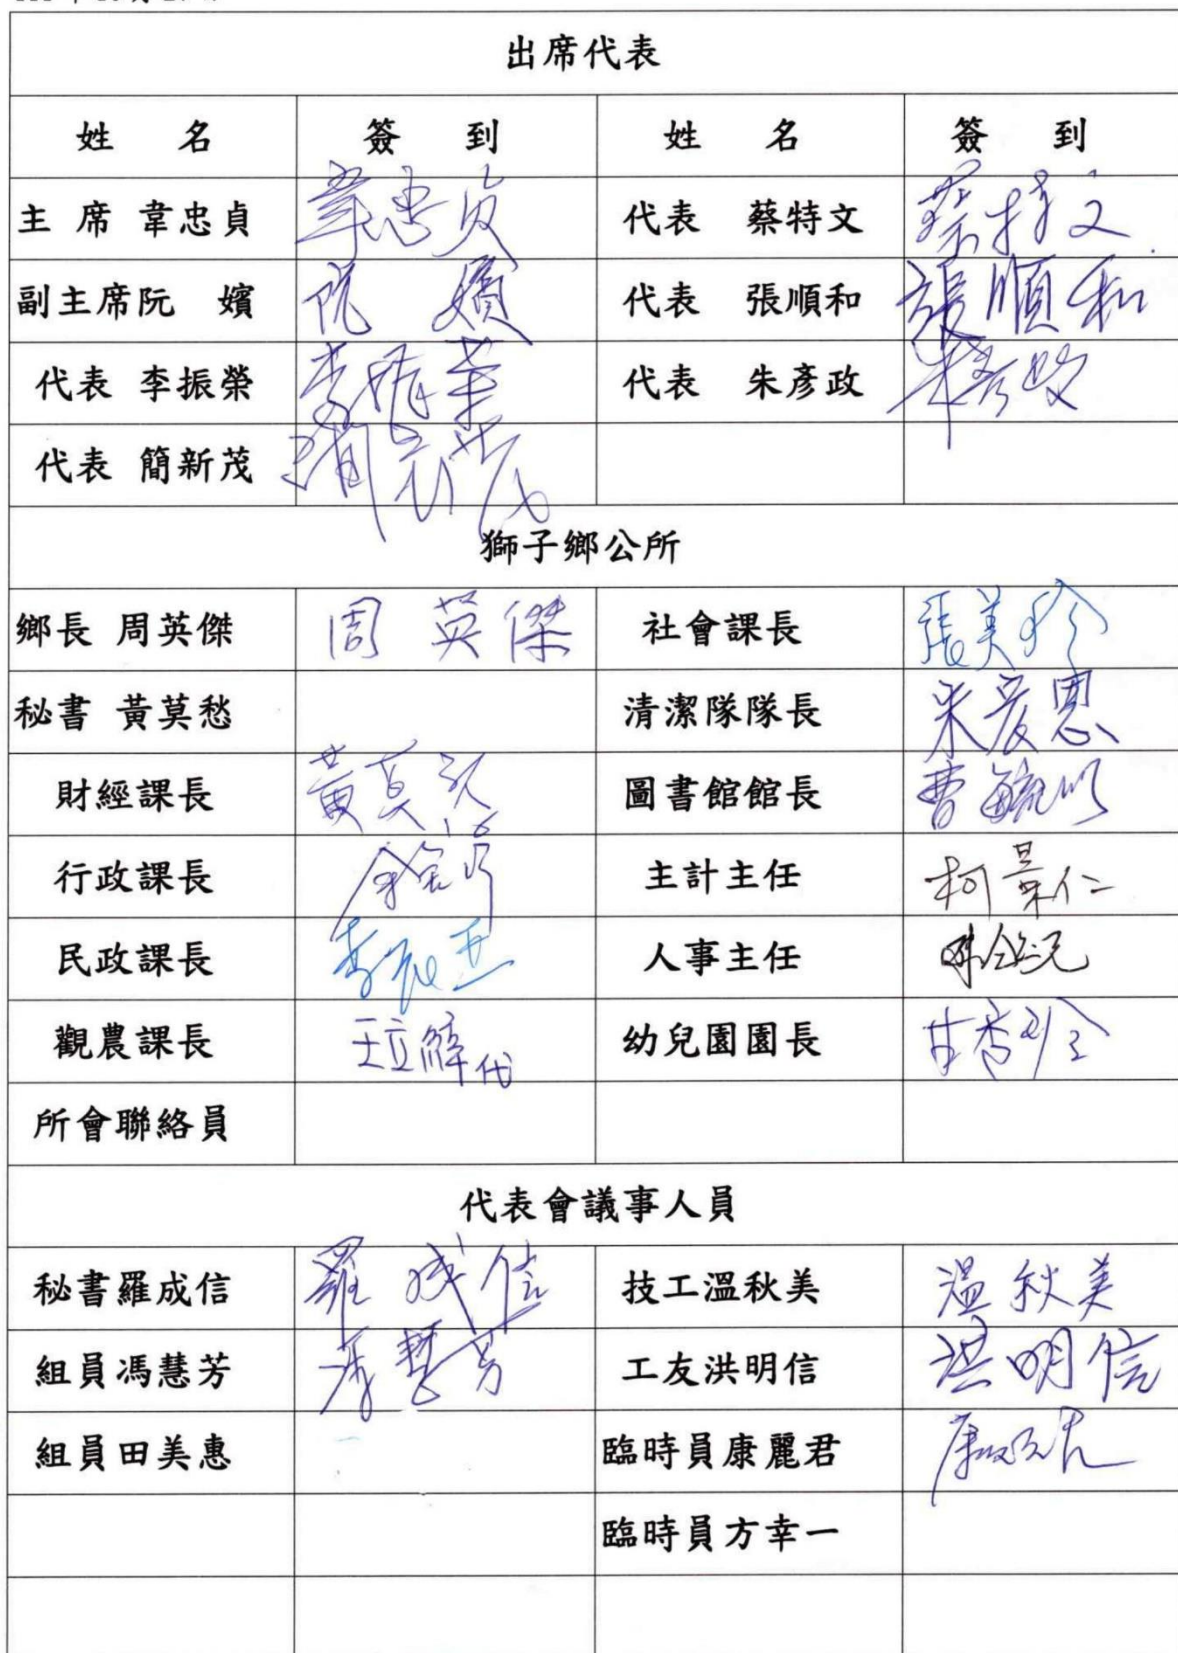 出席代表
姓 名 簽 到 姓 名 簽 到
主 席 韋忠貞 韋忠貞 代表 蔡特文 蔡特文
副主席阮 嬪 阮 嬪 代表 張順和 張順和
代表 李振榮 李振榮 代表 朱彥政 朱彥政
代表 簡新茂 簡新茂
獅子鄉公所
鄉長 周英傑 周英傑 社會課長 張美玲
秘書 黃莫愁 清潔隊隊長
財經課長 圖書館館長
行政課長 主計主任
民政課長 人事主任
觀農課長 幼兒園園長 甘香玲
所會聯絡員
代表會議事人員
秘書羅成信 羅成信 技工溫秋美 溫秋美
組員馮慧芳 馮慧芳 工友洪明信 洪明信
組員田美惠 臨時員康麗君 康麗君
臨時員方幸一